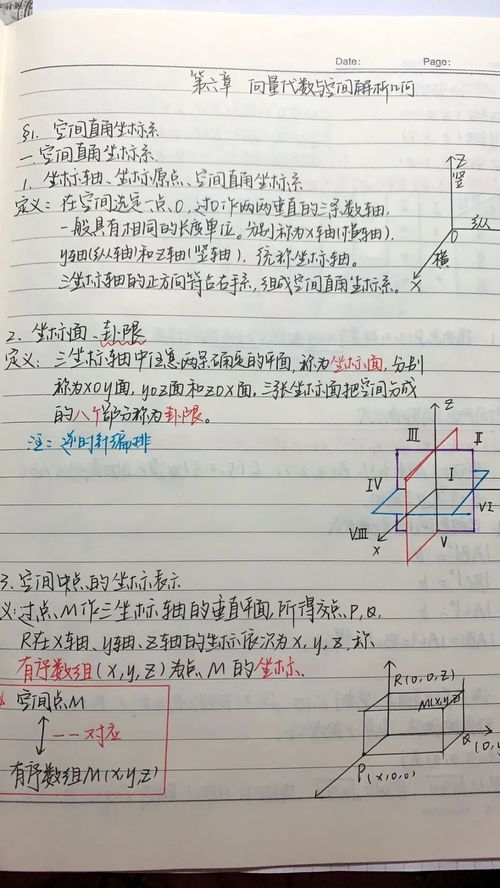 Date: Page:
第六章 向量代数与空间解析几何
§1. 空间直角坐标系
一. 空间直角坐标系
1. 坐标轴、坐标原点、空间直角坐标系
定义: 在空间选定一点O, 过O作两两垂直的三条数轴,
一般具有相同的长度单位。分别称为X轴(横轴),
y轴(纵轴)和Z轴(竖轴), 统称坐标轴。
三坐标轴的正方向符合右手系, 组成空间直角坐标系。
Z
竖
纵
O
横
X
2. 坐标面、卦限
定义: 三坐标轴中任意两条确定的平面, 称为坐标面, 分别
称为XOY面, YOZ面和ZOX面, 三张坐标面把空间分成
的八个部分称为卦限。
注: 逆时针编排
Z
III II
I
IV
VI
VIII V
X
3. 空间中点的坐标表示
义: 过点M作三坐标轴的垂直平面, 所得交点P, Q,
R在X轴、y轴、Z轴的坐标依次为X, y, Z, 称
有序数组(X, y, Z)为点M的坐标.
空间点M
一一对应
有序数组M(X,y,Z)
R(0,0,Z)
M(X,y,Z)
Q(0,y
P(X,0,0)